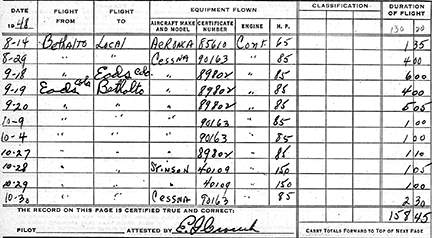 FLIGHT FROM FLIGHT TO EQUIPMENT FLOWN CLASSIFICATION DURATION OF FLIGHT
1948 AIRCRAFT MAKE AND MODEL CERTIFICATE NUMBER ENGINE H. P. 130 20
8-14 Bethalto Local AERONCA 85610 Cont 65 1 35
8-29 " " CESSNA 90163 " 85 4 00
9-18 " Eads Colo " 89802 " 85 6 00
9-19 Eads Colo Bethalto " 89802 " 85 4 00
9-20 " " " 89802 " 85 5 05
10-9 " " 90163 " 85 1 00
10-4 " " " 90163 " 85 1 00
10-27 " " 89802 " 85 1 10
10-28 " " STINSON 40109 " 150 1 05
10-29 " " " 40109 " 150 1 00
10-30 " " CESSNA 90163 " 85 2 30
THE RECORD ON THIS PAGE IS CERTIFIED TRUE AND CORRECT: 158 45
PILOT ATTESTED BY CARRY TOTALS FORWARD TO TOP OF NEXT PAGE